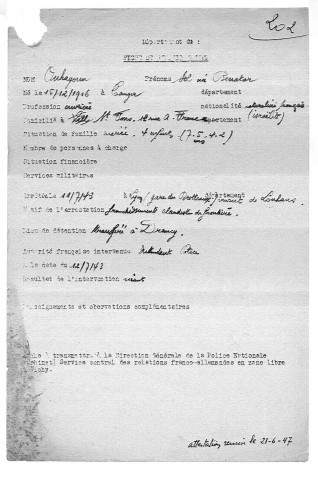 202
Département de :
NOM Ouhayoun Prénoms Sol née Benatar
Né le 15/12/1906 à Tanger département
Profession ouvrière nationalité française
(israélite)
Domicilié à rue A. France département
Situation de famille mariée. 4 enfants (7-5-4-2)
ans
Nombre de personnes à charge
Situation financière
Services militaires
Arrêté le 11/7/43 à Lyon (gare des Brotteaux) venant de Louhans
Motif de l'arrestation franchissement clandestin de frontière.
Lieu de détention transférée à Drancy.
Autorité française intervenue Intendant Police
A la date du 12/7/43
Résultat de l'intervention néant
Renseignements et obervations complémentaires
à transmettre à la Direction Générale de la Police Nationale
(Cabinet) Service central des relations franco-allemandes en zone libre
Vichy.
attestation remise le 21-6-47